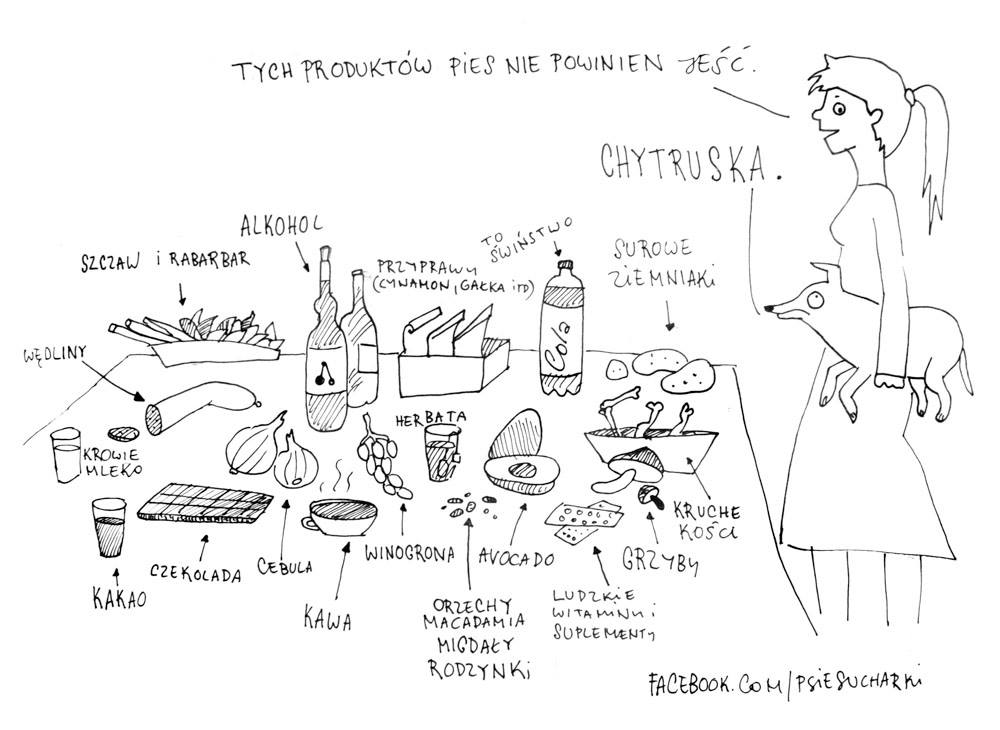 TYCH PRODUKTÓW PIES NIE POWINIEN JEŚĆ.
CHYTRUSKA.
ALKOHOL
SZCZAW i RABARBAR
PRZYPRAWY
(CYNAMON, GAŁKA iTD)
TO
ŚWIŃSTWO
SUROWE
ZIEMNIAKI
Cola
WĘDLINY
HERBATA
KROWIE
MLEKO
KRUCHE
KOŚCI
KAKAO
CZEKOLADA
CEBULA
KAWA
WINOGRONA
AVOCADO
GRZYBY
ORZECHY
MACADAMIA
MIGDAŁY
RODZYNKi
LUDZKIE
WITAMINY i
SUPLEMENTY
FACEBOOK.COM/PSIESUCHARKI